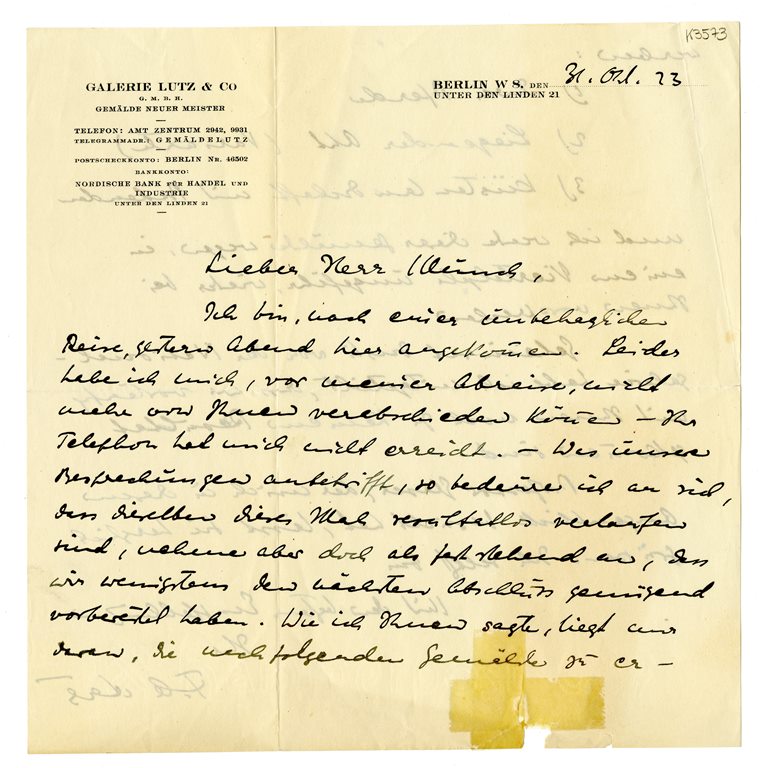 K3573
GALERIE LUTZ & CO
G. M. B. H.
GEMÄLDE NEUER MEISTER
TELEFON: AMT ZENTRUM 2942, 9931
TELEGRAMMADR.: GEMÄLDELUTZ
POSTSCHECKKONTO: BERLIN NR. 46502
BANKKONTO:
NORDISCHE BANK FÜR HANDEL UND
INDUSTRIE
UNTER DEN LINDEN 21
BERLIN W 8, DEN 31. Okt. 23
UNTER DEN LINDEN 21
Lieber Herr Wünsch,
Ich bin, nach einer unbehaglichen
Reise, gestern Abend hier angekom̄en. Leider
habe ich mich, vor meiner Abreise, nicht
mehr von Ihnen verabschieden kön̄en – Ihr
Telephon hat mich nicht erreicht. – Was unsere
Besprechungen anbetrifft, so bedaure ich an sich,
dass dieselben dieses Mal resultatlos verlaufen
sind, nehme aber doch als feststehend an, dass
wir wenigstens den nächsten Abschluss genügend
vorbereitet haben. Wie ich Ihnen sagte, liegt mir
daran, die nachfolgenden Gemälde zu er –